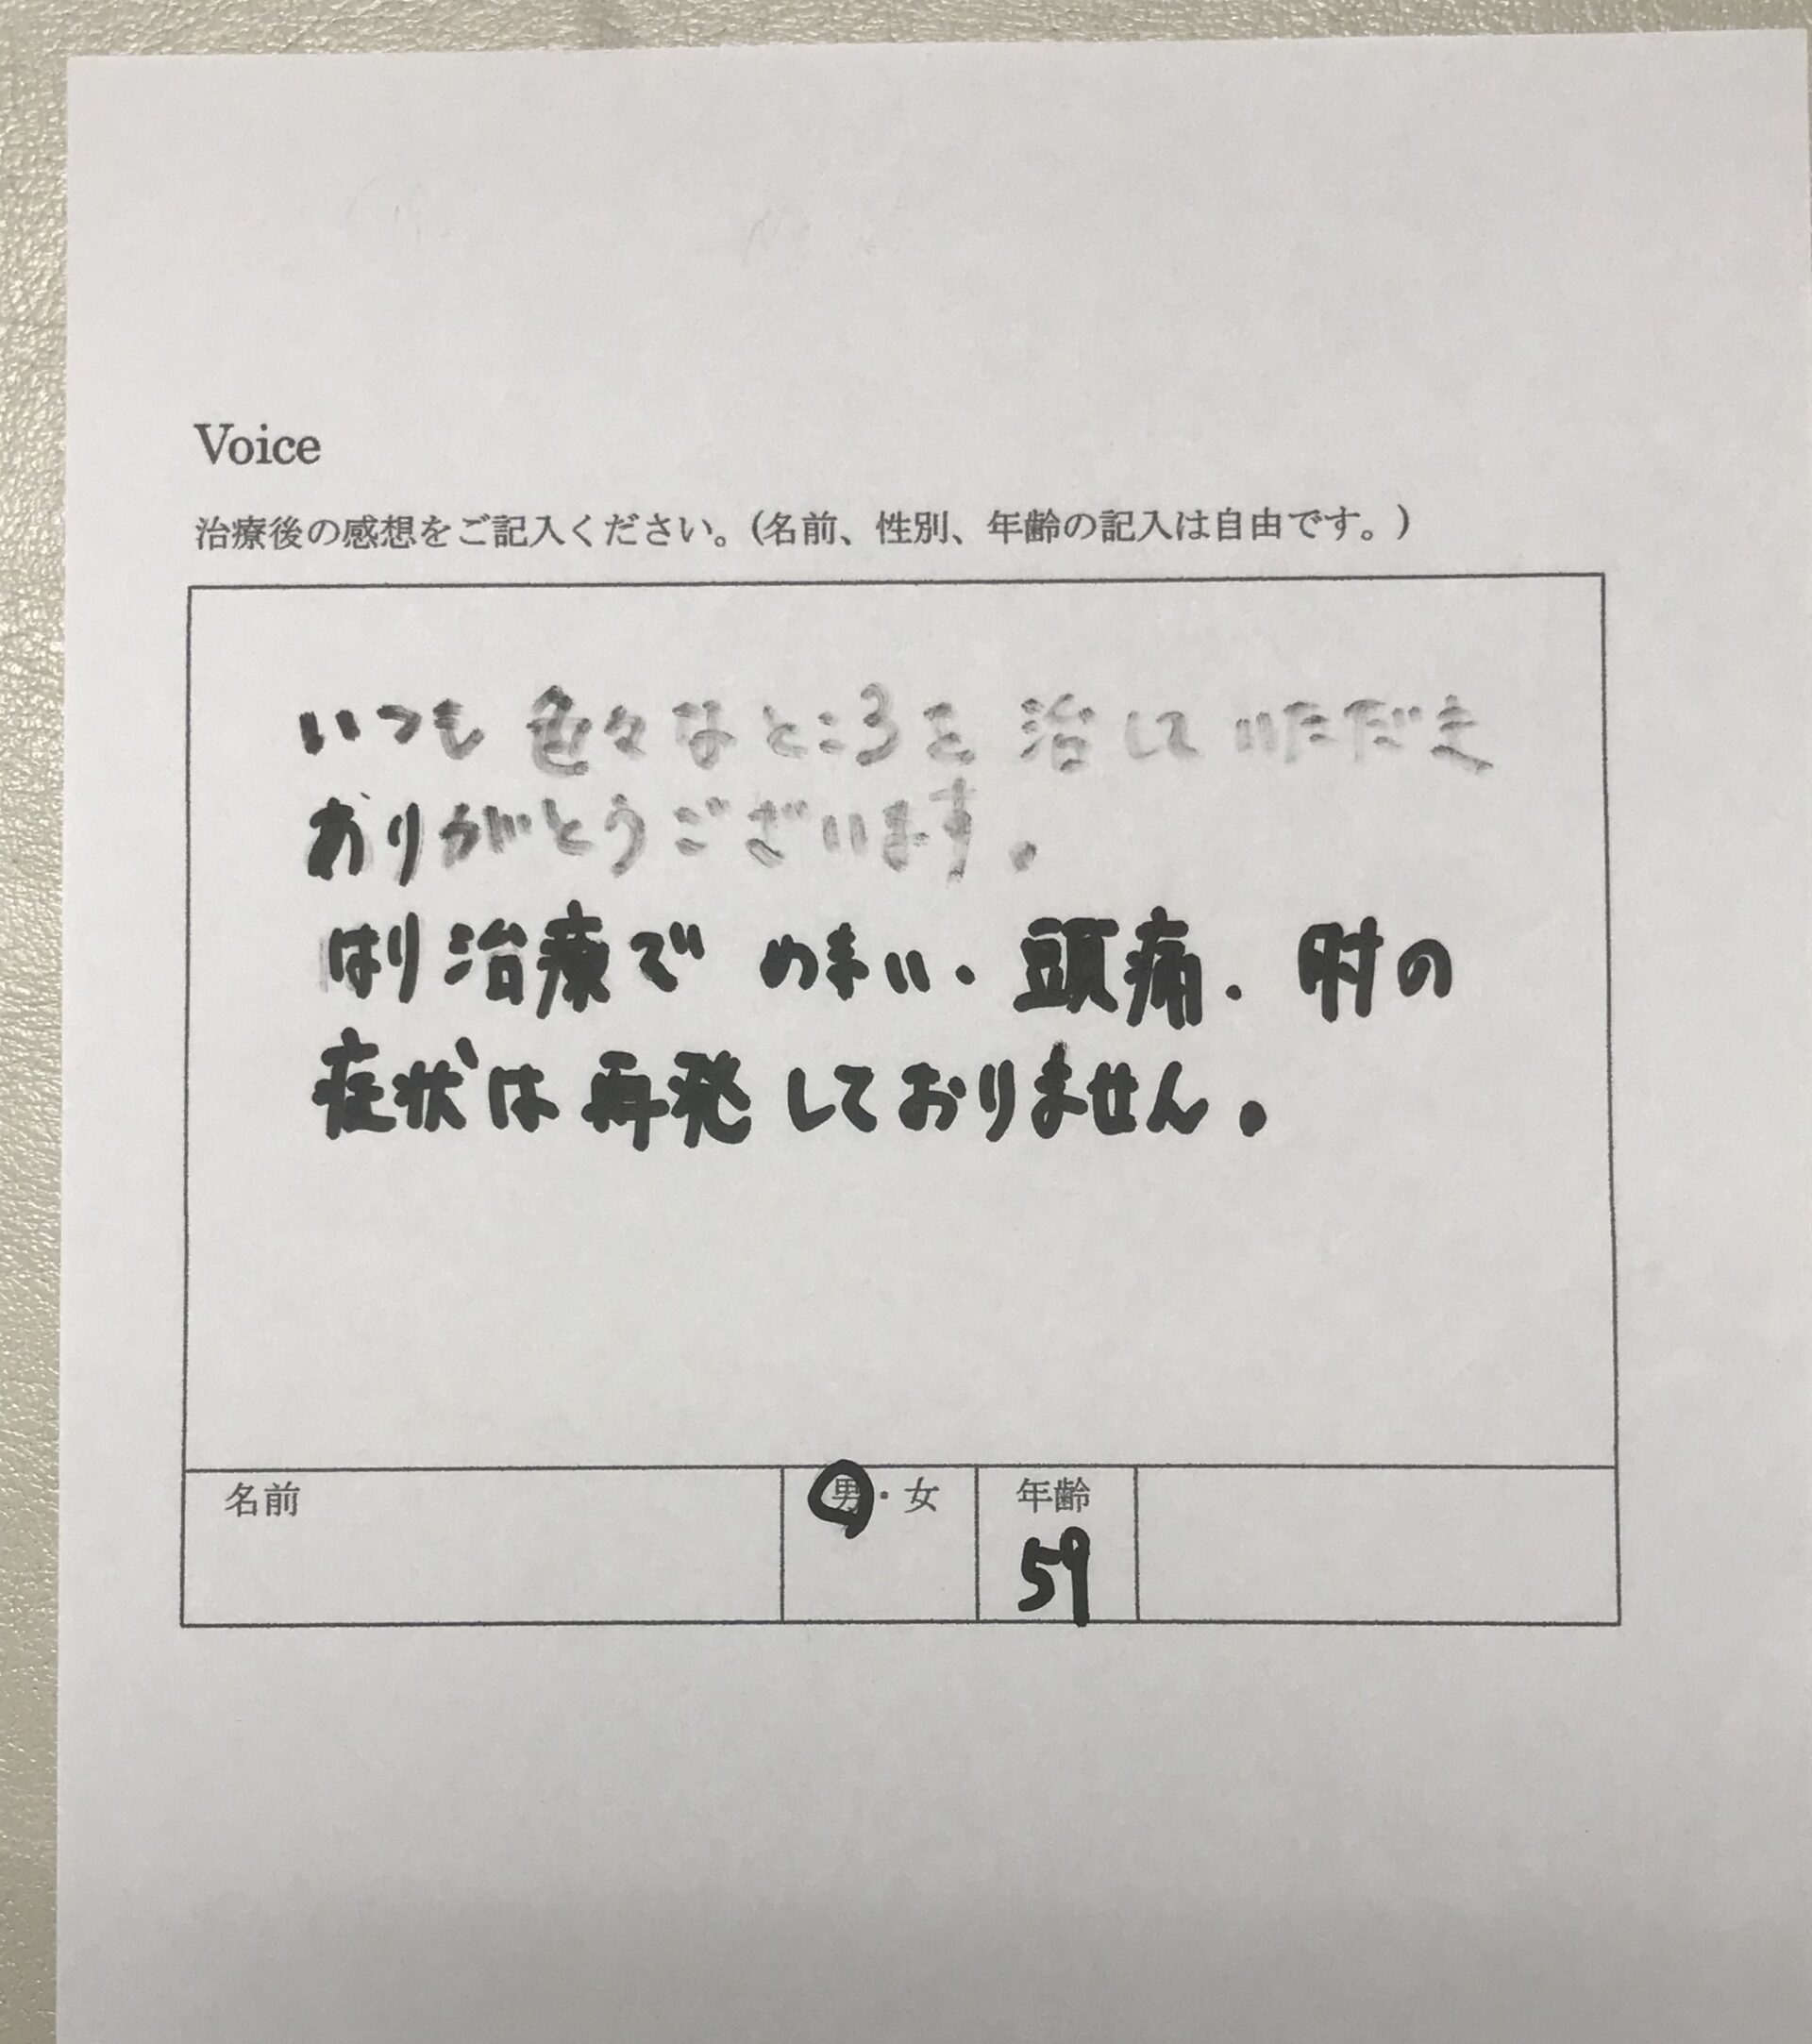 Voice
治療後の感想をご記入ください。(名前、性別、年齢の記入は自由です。)
いつも色々なところを治していただき
ありがとうございます。
はり治療でめまい・頭痛・肘の
症状は再発しておりません。
名前 男・女 年齢
59